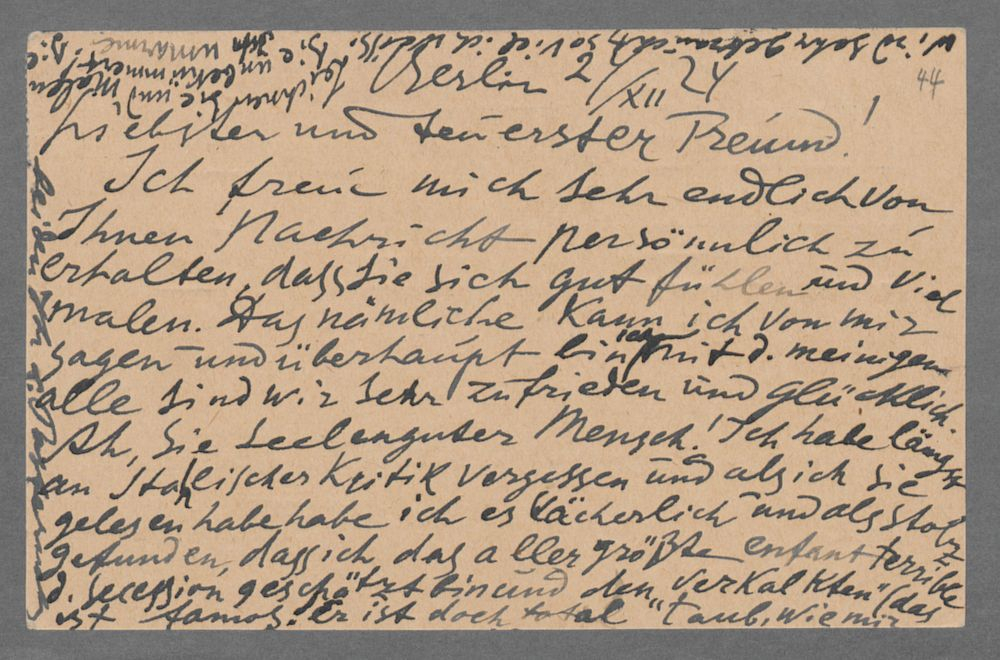 Berlin 2/XII 24
44
Liebster und teuerster Freund!
Ich freue mich sehr endlich von
Ihnen Nachricht persönnlich zu
erhalten, dass sie sich gut fühlen und viel
malen. Das nämliche kann ich von mir
sagen und überhaupt bin ich mit d. meinigen
alle sind wir sehr zufrieden und glücklich.
Ah, Sie seelenguter Mensch! Ich habe längst
an Stahlischer Kritik vergessen und als ich sie
gelesen habe habe ich es lächerlich und als stolz
gefunden, dass ich das allergrößte enfant terrible
d. Secession geschätzt bin und den "verkalkten" (das
ist famos. Er ist doch total "taub, wie mir